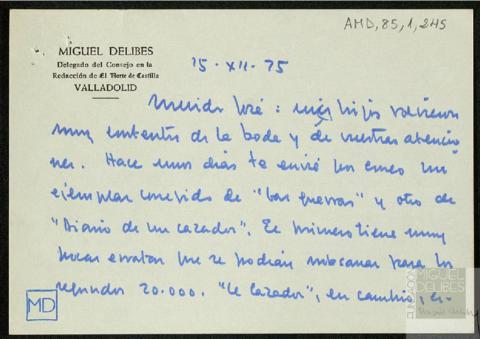 AMD, 85, 1, 245
MIGUEL DELIBES
Delegado del Consejo en la
Redacción de El Norte de Castilla
VALLADOLID
15-XII-75
Querido José: mis hijos volvieron
muy contentos de la boda y de vuestras atencio
nes. Hace unos días te envié por correo un
ejemplar corregido de "Las guerras" y otro de
"Diario de un cazador". El primero tiene muy
pocas erratas que se podrían subsanar para los
segundos 20.000. "El Cazador", en cambio, es-
MD
FUNDACIÓN
MIGUEL
DELIBES